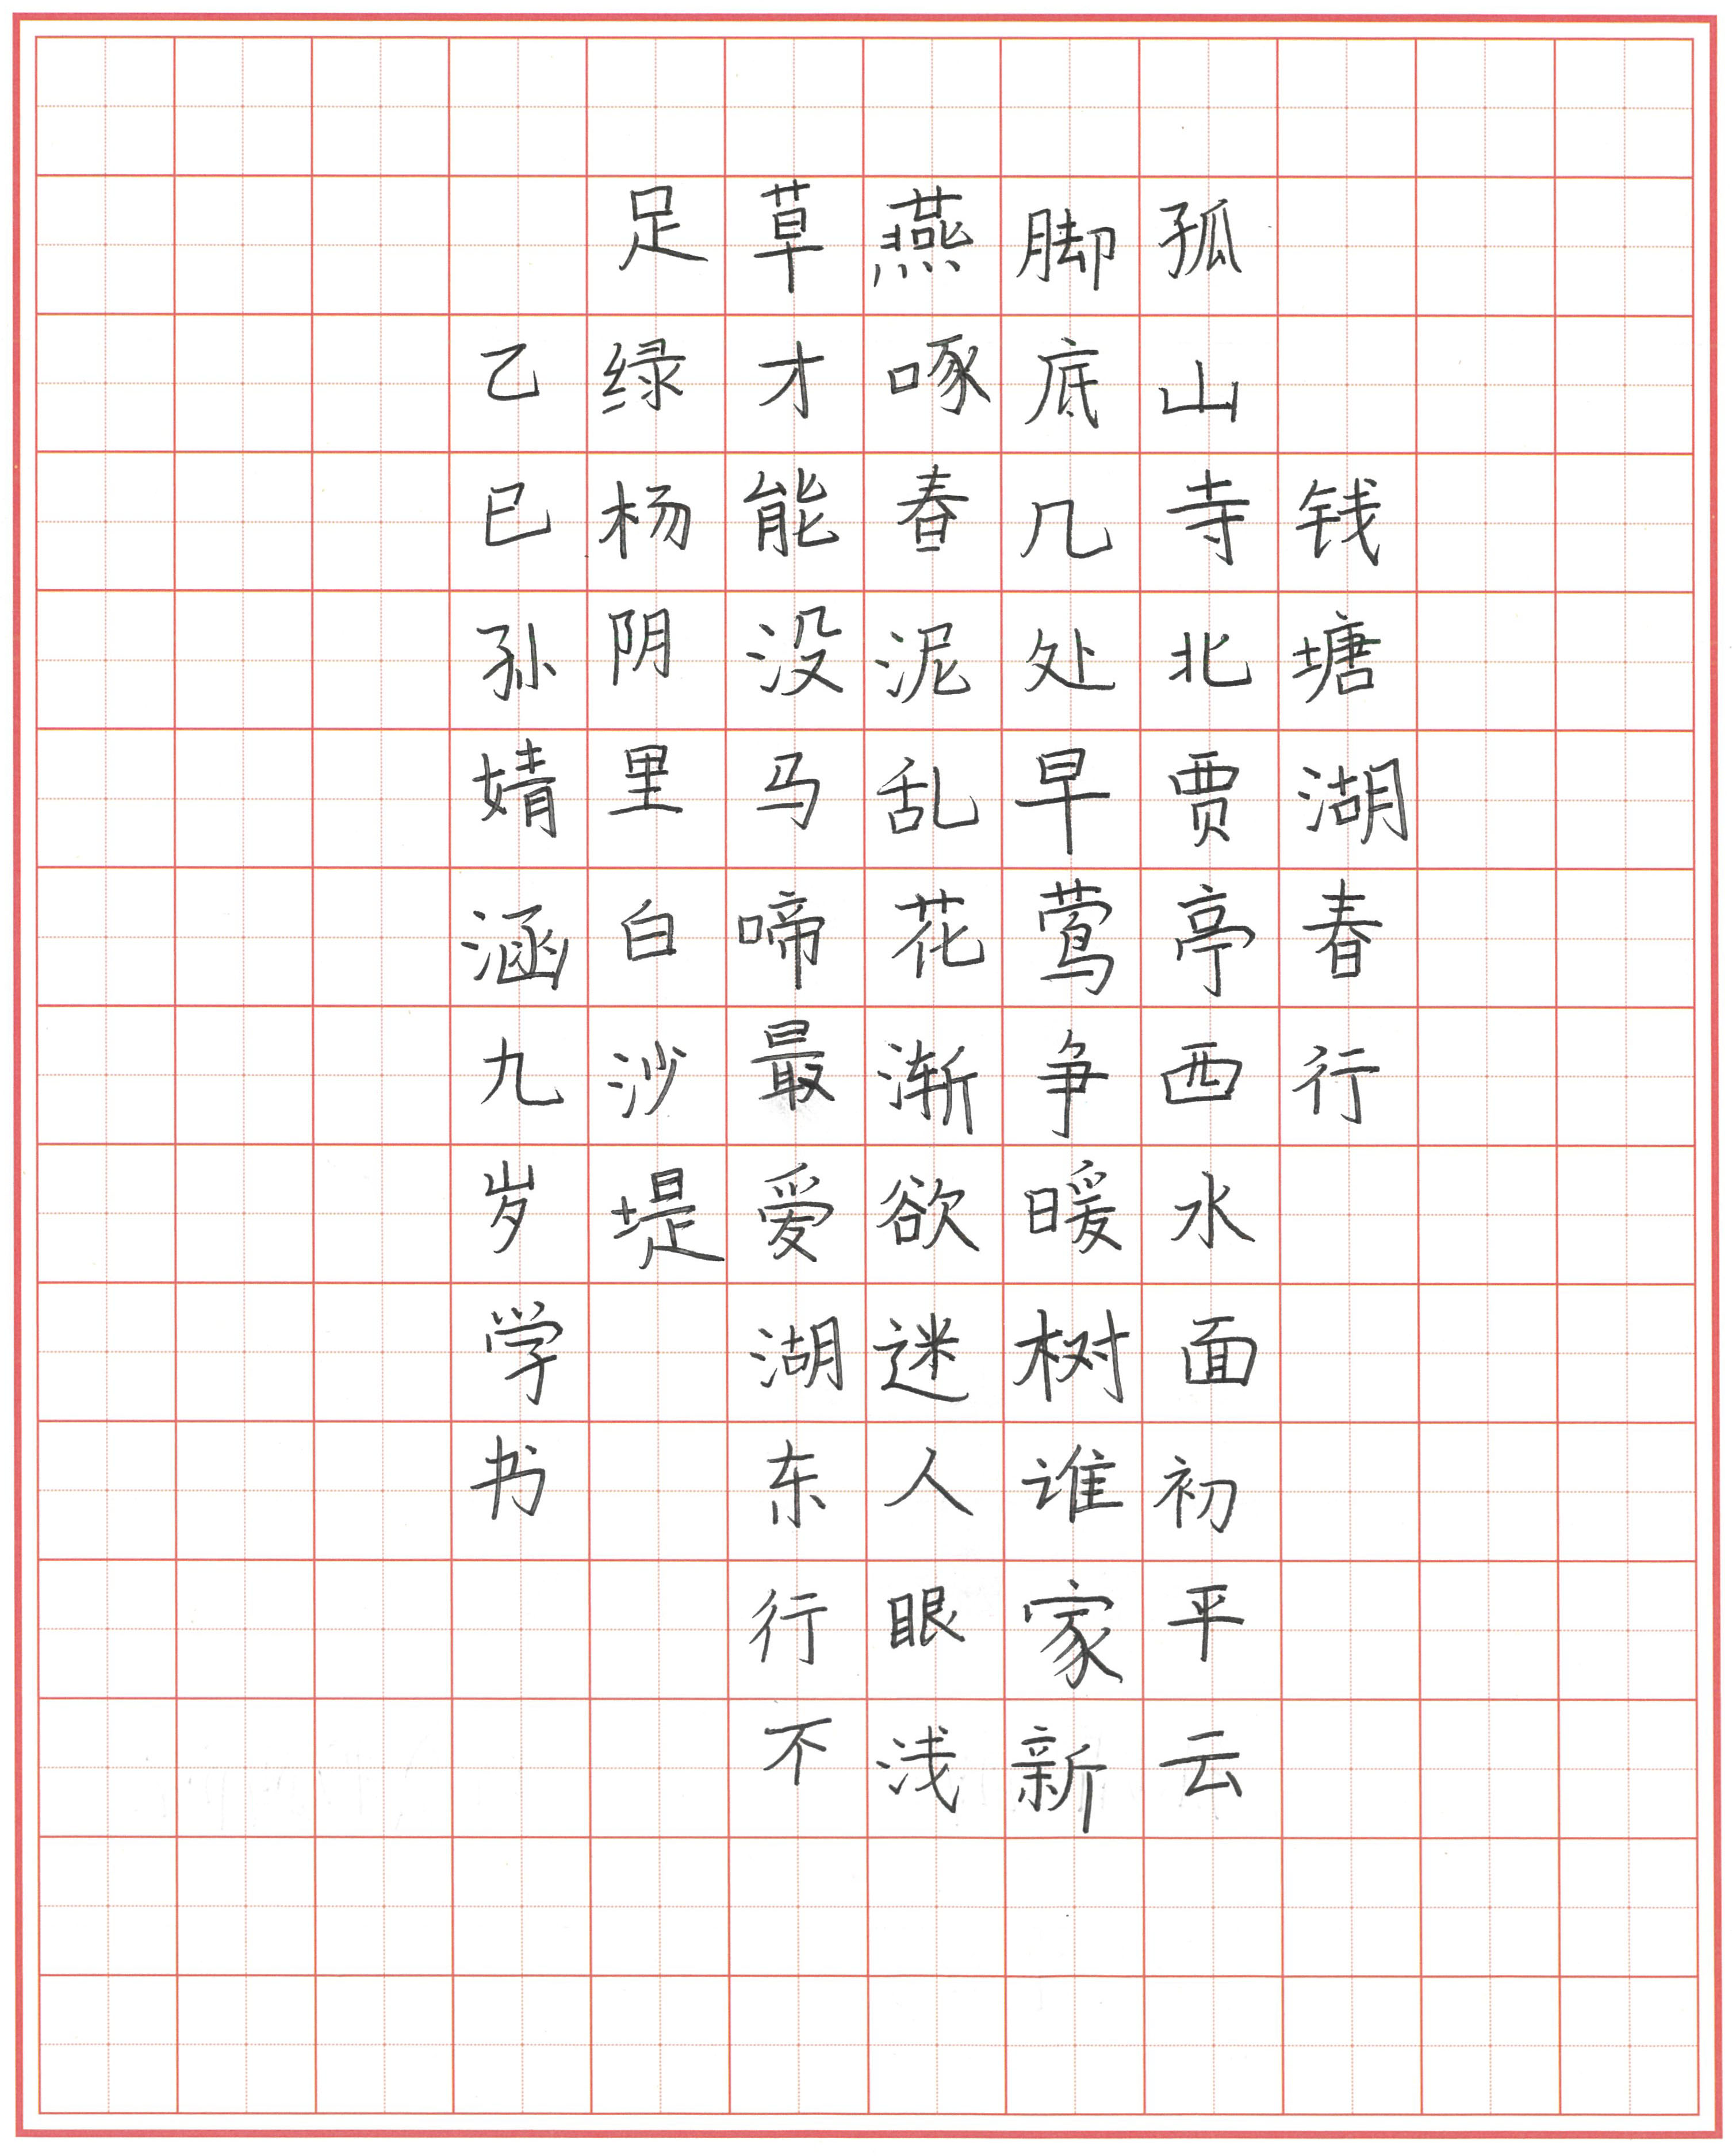 钱塘湖春行
孤山寺北贾亭西水面初平云
脚底几处早莺争暖树谁家新
燕啄春泥乱花渐欲迷人眼浅
草才能没马啼最爱湖东行不
足绿杨阴里白沙堤
乙巳孙婧涵九岁学书